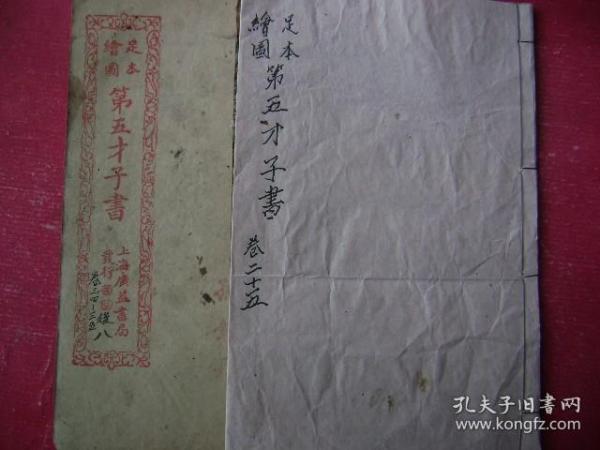 足本
繪圖
第五才子書
上海廣益書局
發行
後八
足本
繪圖
第五才子書
卷二十五
孔夫子旧书网
www.kongfz.com